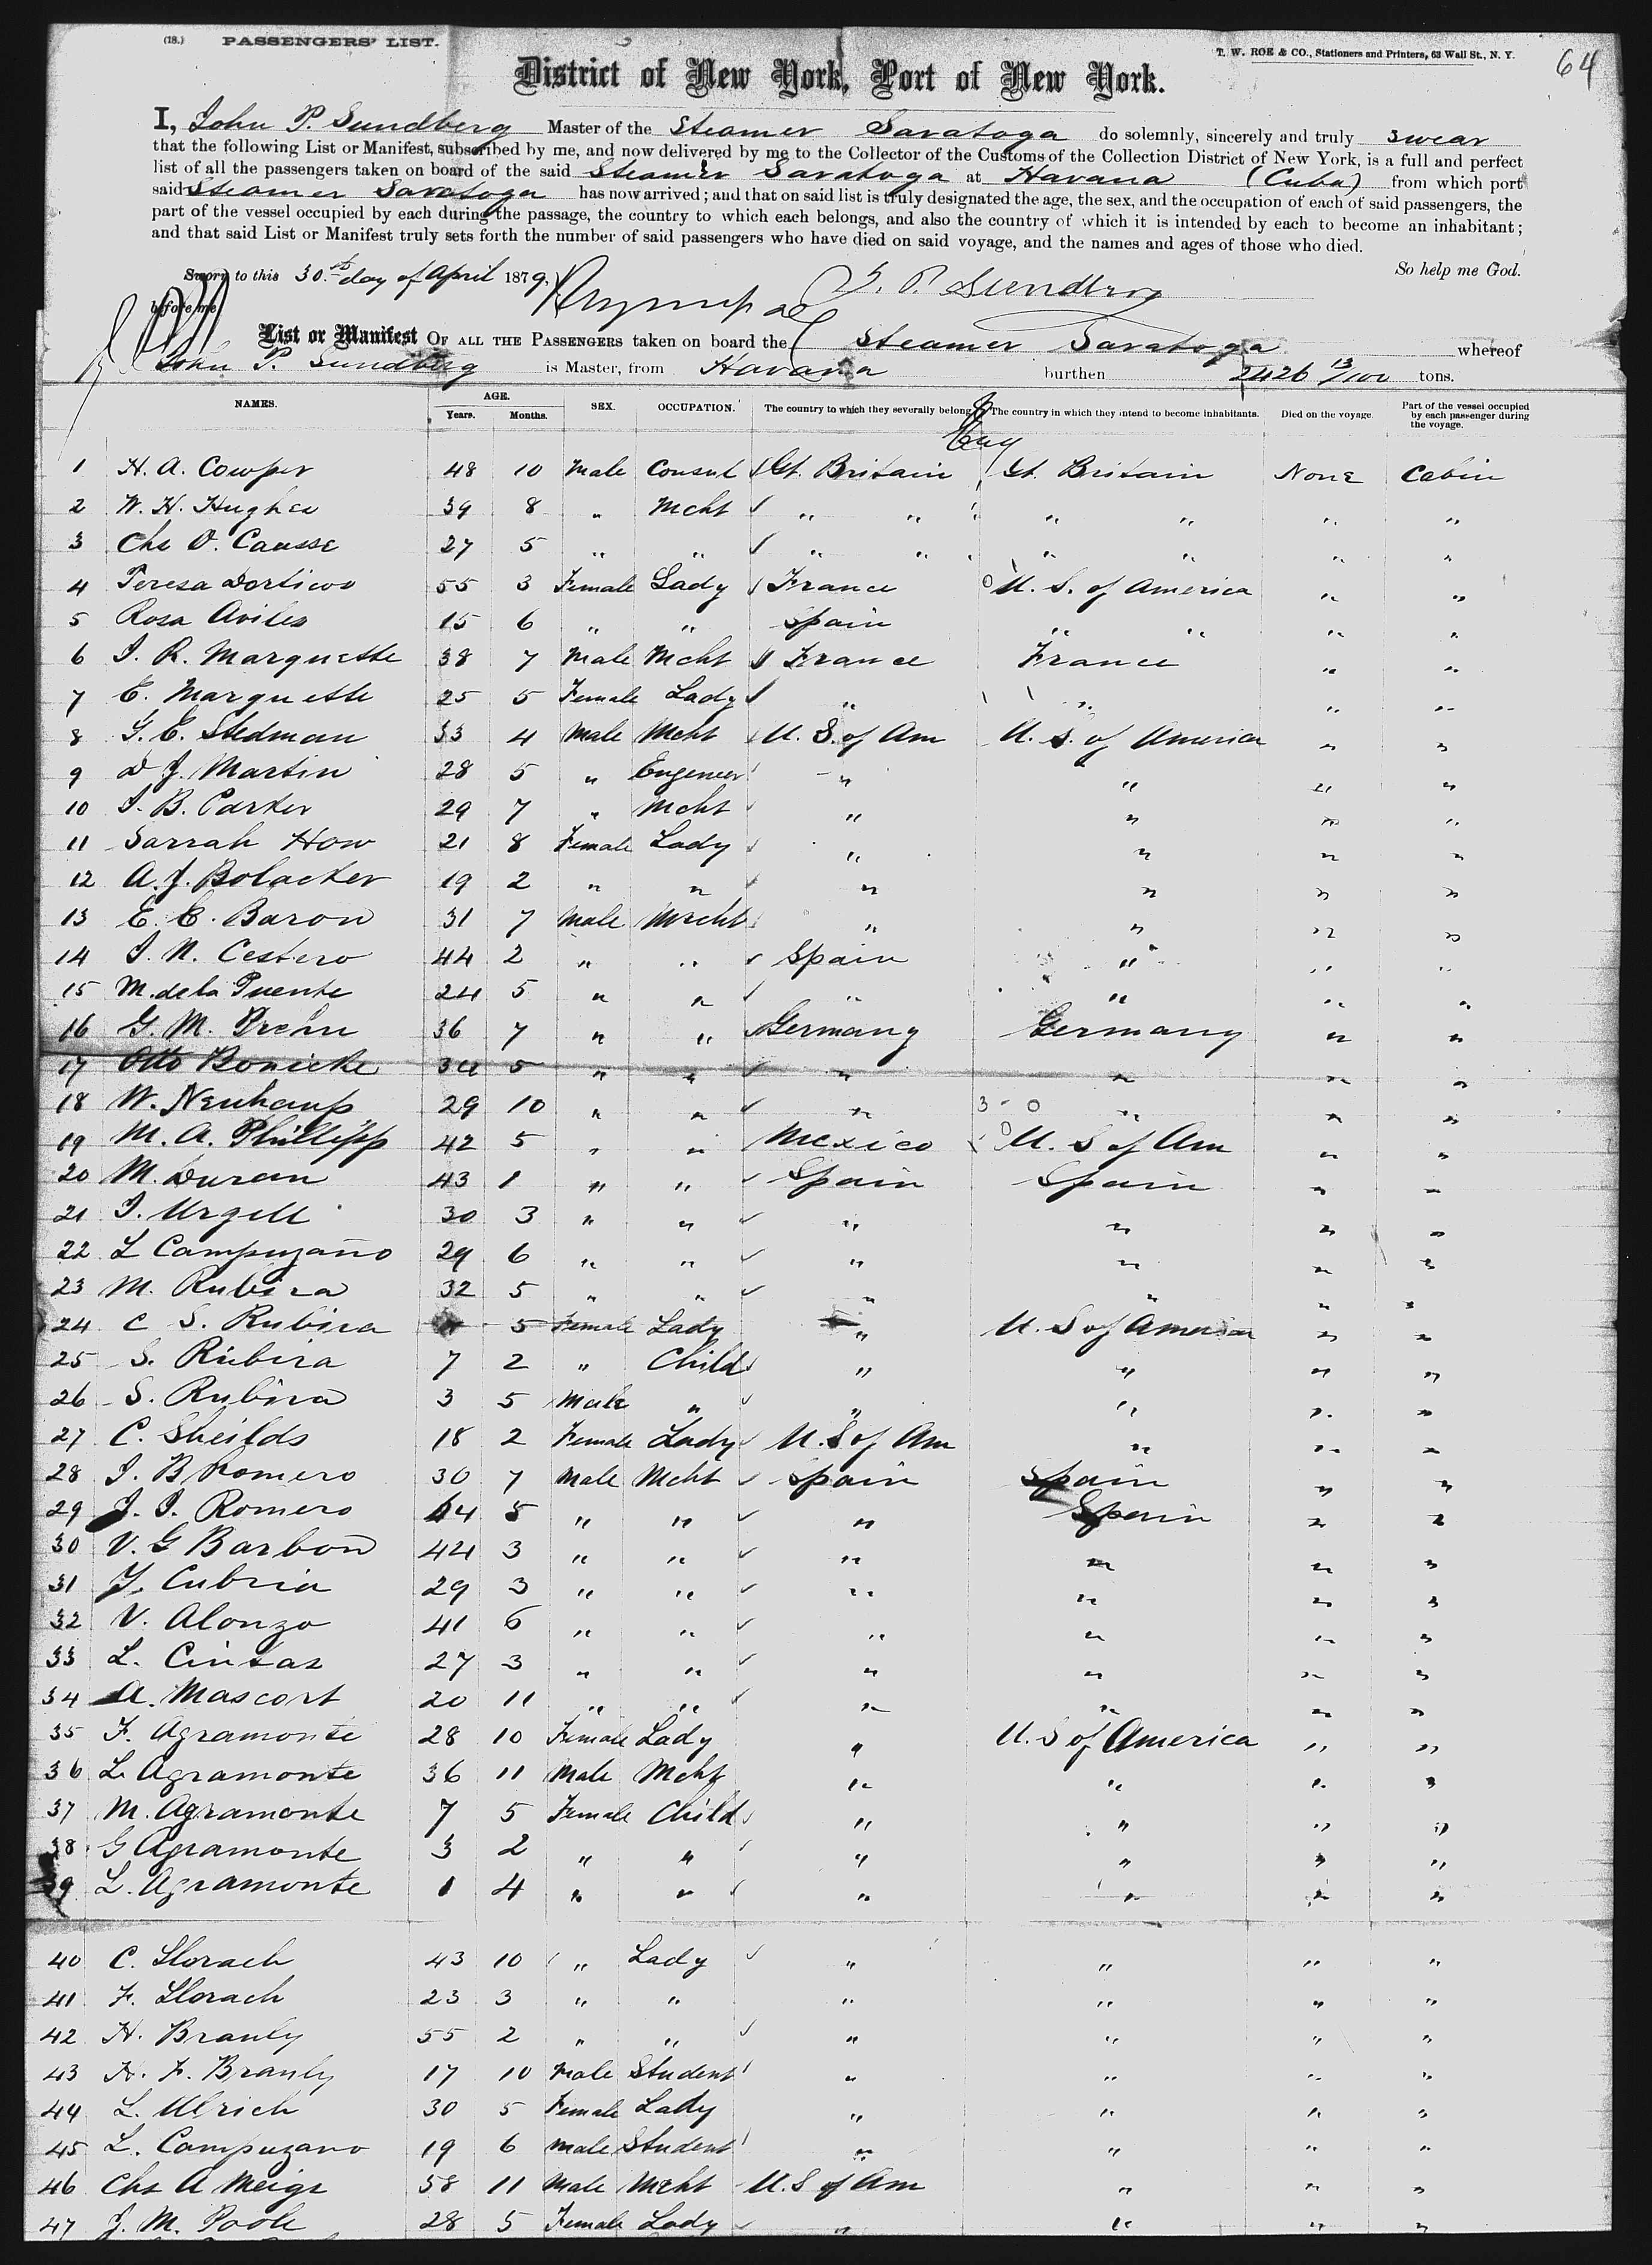 (18.) PASSENGERS' LIST.
T. W. ROE & CO., Stationers and Printers, 63 Wall St., N. Y.
64
District of New York, Port of New York.
I, John P. Sundberg Master of the Steamer Saratoga do solemnly, sincerely and truly swear
that the following List or Manifest, subscribed by me, and now delivered by me to the Collector of the Customs of the Collection District of New York, is a full and perfect
list of all the passengers taken on board of the said Steamer Saratoga at Havana (Cuba) from which port
said Steamer Saratoga has now arrived; and that on said list is truly designated the age, the sex, and the occupation of each of said passengers, the
part of the vessel occupied by each during the passage, the country to which each belongs, and also the country of which it is intended by each to become an inhabitant;
and that said List or Manifest truly sets forth the number of said passengers who have died on said voyage, and the names and ages of those who died.
So help me God.
Sworn to this 30.th day of April 1879.
J. P. Sundberg
before me
List or Manifest OF ALL THE PASSENGERS taken on board the Steamer Saratoga whereof
John P. Sundberg is Master, from Havana burthen 2426 13/100 tons.
NAMES. AGE. Years. Months. SEX. OCCUPATION. The country to which they severally belong. The country in which they intend to become inhabitants. Died on the voyage. Part of the vessel occupied by each passenger during the voyage.
1 H. A. Cowper 48 10 Male Consul Gt. Britain Gt. Britain None Cabin
2 W. H. Hughes 39 8 " Mcht " " " " " "
3 Chs O. Causse 27 5 " " " " " " " "
4 Teresa Dorticos 55 3 Female Lady France U. S. of America " "
5 Rosa Aviles 15 6 " " Spain " " " "
6 J. R. Marquette 38 7 Male Mcht France France " "
7 E. Marquette 25 5 Female Lady " " " "
8 G. E. Stedman 33 4 Male Mcht U. S. of Am U. S. of America " "
9 D J. Martin 28 5 " Engeneer " " " "
10 J. B. Parker 29 7 " Mcht " " " "
11 Sarrah How 21 8 Female Lady " " " "
12 A. J. Bolacker 19 2 " " " " " "
13 E. E. Baron 31 7 Male Mrcht " " " "
14 J. N. Cestero 44 2 " " Spain " " "
15 M. de la Puente 24 5 " " " " " "
16 G. M. Prehn 36 7 " " Germany Germany " "
17 Otto Bonicke 34 5 " " " " " "
18 W. Neuhaup 29 10 " " " " " "
19 M. A. Phillipp 42 5 " " Mexico U. S of Am " "
20 M. Duran 43 1 " " Spain Spain " "
21 J. Urgell 30 3 " " " " " "
22 L Campuzano 29 6 " " " " " "
23 M. Rubira 32 5 " " " " " "
24 C S. Rubira 5 Female Lady " U. S of America " "
25 S. Rubira 7 2 " Child " " " "
26 S. Rubira 3 5 Male " " " " "
27 C. Sheilds 18 2 Female Lady U. S of Am " " "
28 J. B Romero 30 7 Male Mcht Spain Spain " "
29 J. J. Romero 44 5 " " " Spain " "
30 V. G Barbon 44 3 " " " " " "
31 Y. Cubria 29 3 " " " " " "
32 V. Alonzo 41 6 " " " " " "
33 L. Cintas 27 3 " " " " " "
34 A. Mascort 20 11 " " " " " "
35 F. Agramonte 28 10 Female Lady " U. S of America " "
36 L. Agramonte 36 11 Male Mcht " " " "
37 M. Agramonte 7 5 Female Child " " " "
38 G Agramonte 3 2 " " " " " "
39 L. Agramonte 1 4 " " " " " "
40 C. Llorach 43 10 " Lady " " " "
41 F. Llorach 23 3 " " " " " "
42 H. Branly 55 2 " " " " " "
43 H. F. Branly 17 10 Male Student " " " "
44 L. Ulrich 30 5 Female Lady " " " "
45 L. Campuzano 19 6 Male Student " " " "
46 Chs A Meigs 58 11 Male Mrcht U. S of Am " " "
47 J. M. Poole 28 5 Female Lady " " " "